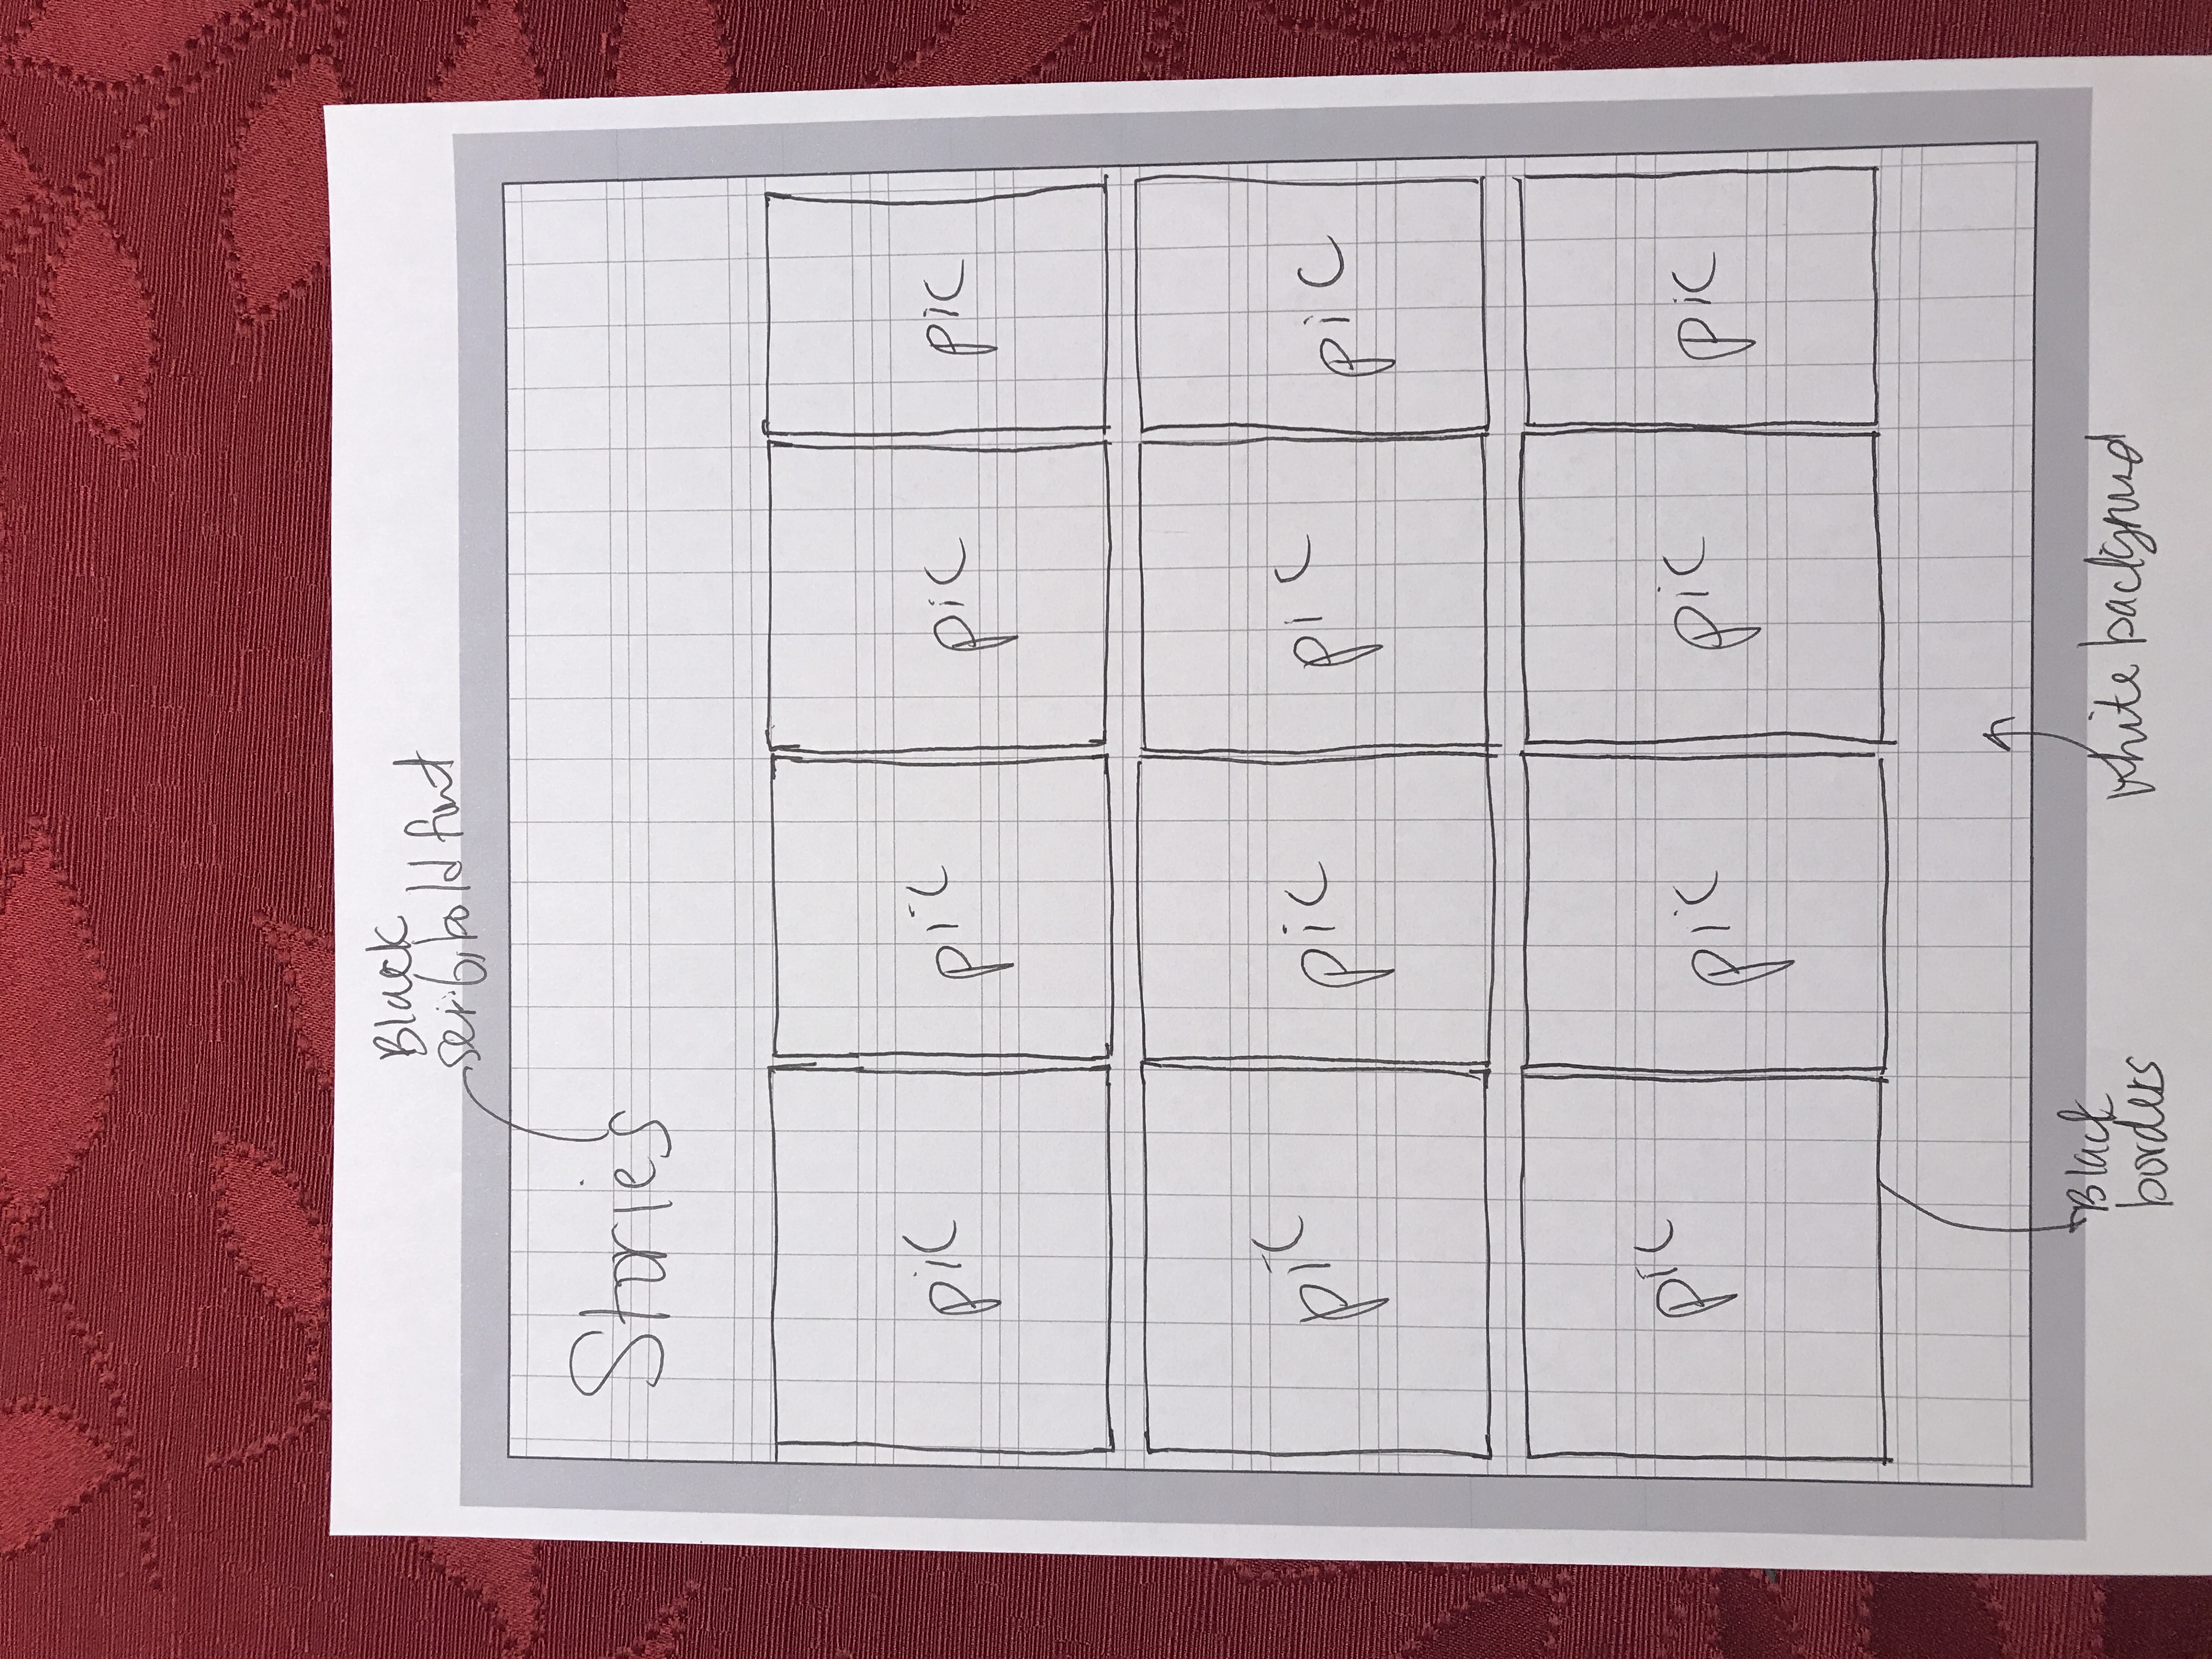 Black
serif, bold font
Stories
pic pic pic pic
pic pic pic pic
pic pic pic pic
Black
borders
white background